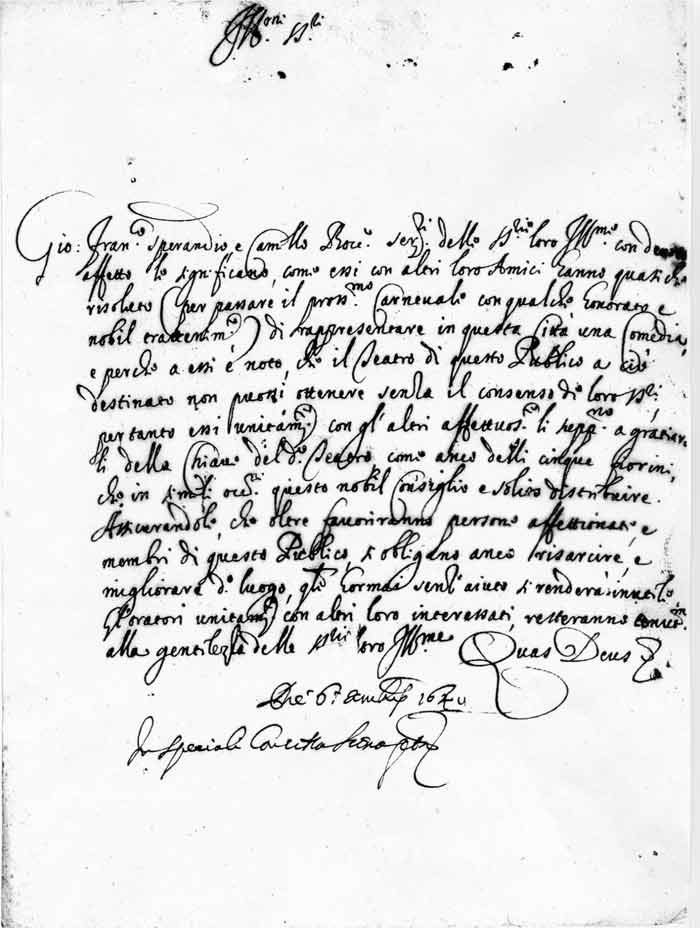 Ill.mi SS.ri
Gio: Fran.co Sperandio e Camillo Roc. ser.ri delle SS.rie loro Ill.me con
affetto le significano, come essi con altri loro Amici hanno quasi che
risoluto (per passare il pross.mo Carnevale con qualche honorato e
nobil trattenim.to) di rappresentare in questa Città una Comedia,
e perche a essi è noto, che il Teatro di questo Publico a ciò
destinato non puossi ottenere senza il consenso di loro SS.ri
per tanto essi unitam.te con gl'altri affettuos.te li a gratiar
li della Chiave del d.o Teatro come anco delli cinque fiorini,
che in simili occ.ni questo nobil Consiglio è solito distribuire.
Assicurandole, che oltre favoriranno persone affettionate, e
membri di questo Publico, si obligano anco risarcire, e
migliorare d.o luogo, hormai senz'aiuto si renderà inutile
Gl'oratori unitam.te con altri loro interessati, resteranno tenuti
alla gentilezza delle SS.rie loro Ill.me Quas Deus
Die 6
In speciali